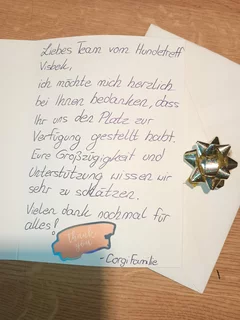 Liebes Team vom Hundetreff
Visbek,
ich möchte mich herzlich
bei Ihnen bedanken, dass
Ihr uns den Platz zur
Verfügung gestellt habt.
Eure Großzügigkeit und
Unterstützung wissen wir
sehr zu schätzen.
Vielen dank nochmal für
alles!
thank
you
- Corgi Familie